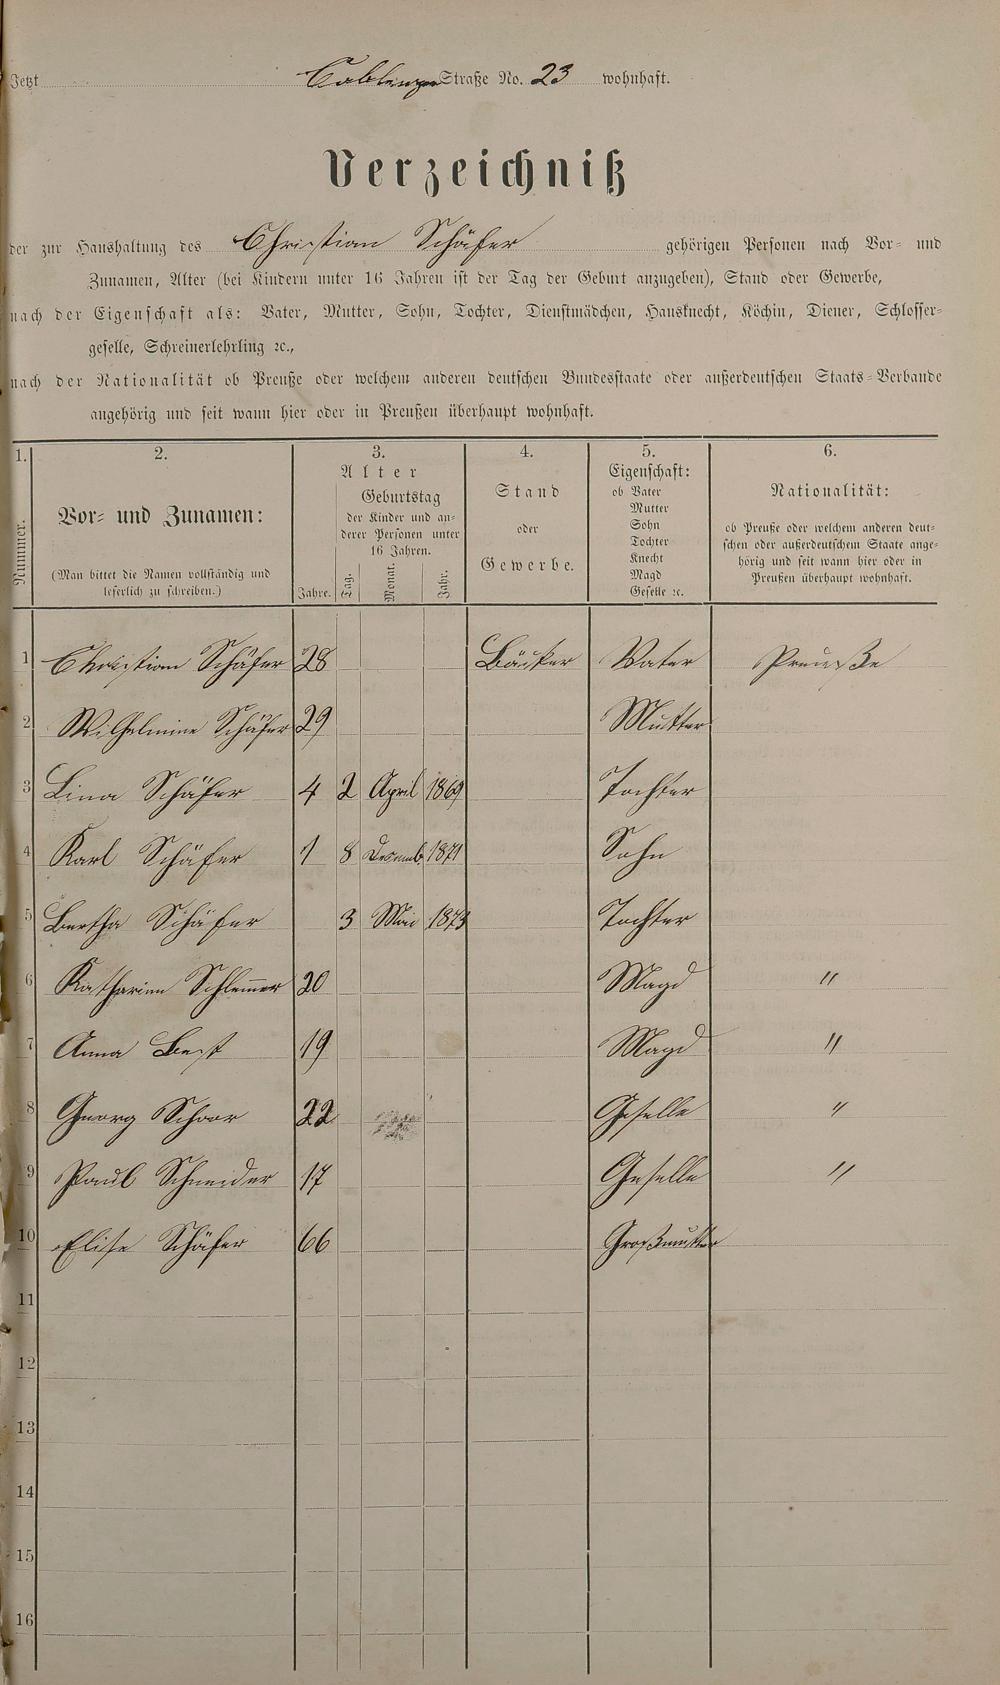 Jetzt Coblenzer Straße No. 23 wohnhaft.
Verzeichniß
der zur Haushaltung des Christian Schäfer gehörigen Personen nach Vor- und
Zunamen, Alter (bei Kindern unter 16 Jahren ist der Tag der Geburt anzugeben), Stand oder Gewerbe,
nach der Eigenschaft als: Vater, Mutter, Sohn, Tochter, Dienstmädchen, Hausknecht, Köchin, Diener, Schlosser-
geselle, Schreinerlehrling ꝛc.,
nach der Nationalität ob Preuße oder welchem anderen deutschen Bundesstaate oder außerdeutschen Staats-Verbande
angehörig und seit wann hier oder in Preußen überhaupt wohnhaft.
1. 2. 3. 4. 5. 6.
Nummer.
Vor- und Zunamen:
(Man bittet die Namen vollständig und
leserlich zu schreiben.)
Alter
Geburtstag
der Kinder und an-
derer Personen unter
16 Jahren.
Jahre. Tag. Monat. Jahr.
Stand
oder
Gewerbe.
Eigenschaft:
ob Vater
Mutter
Sohn
Tochter
Knecht
Magd
Geselle ꝛc.
Nationalität:
ob Preuße oder welchem anderen deut-
schen oder außerdeutschem Staate ange-
hörig und seit wann hier oder in
Preußen überhaupt wohnhaft.
1 Christian Schäfer 28 Bäcker Vater Preuße
2 Wilhelmine Schäfer 29 Mutter
3 Lina Schäfer 4 2 April 1869 Tochter
4 Karl Schäfer 1 8 Dezemb 1871 Sohn
5 Bertha Schäfer 3 Mai 1873 Tochter
6 Katharina Schlem̅er 20 Magd "
7 Anna Best 19 Magd "
8 Georg Schoor 22 Geselle "
9 Paul Schneider 17 Geselle "
10 Elise Schäfer 66 Großmutter
11
12
13
14
15
16